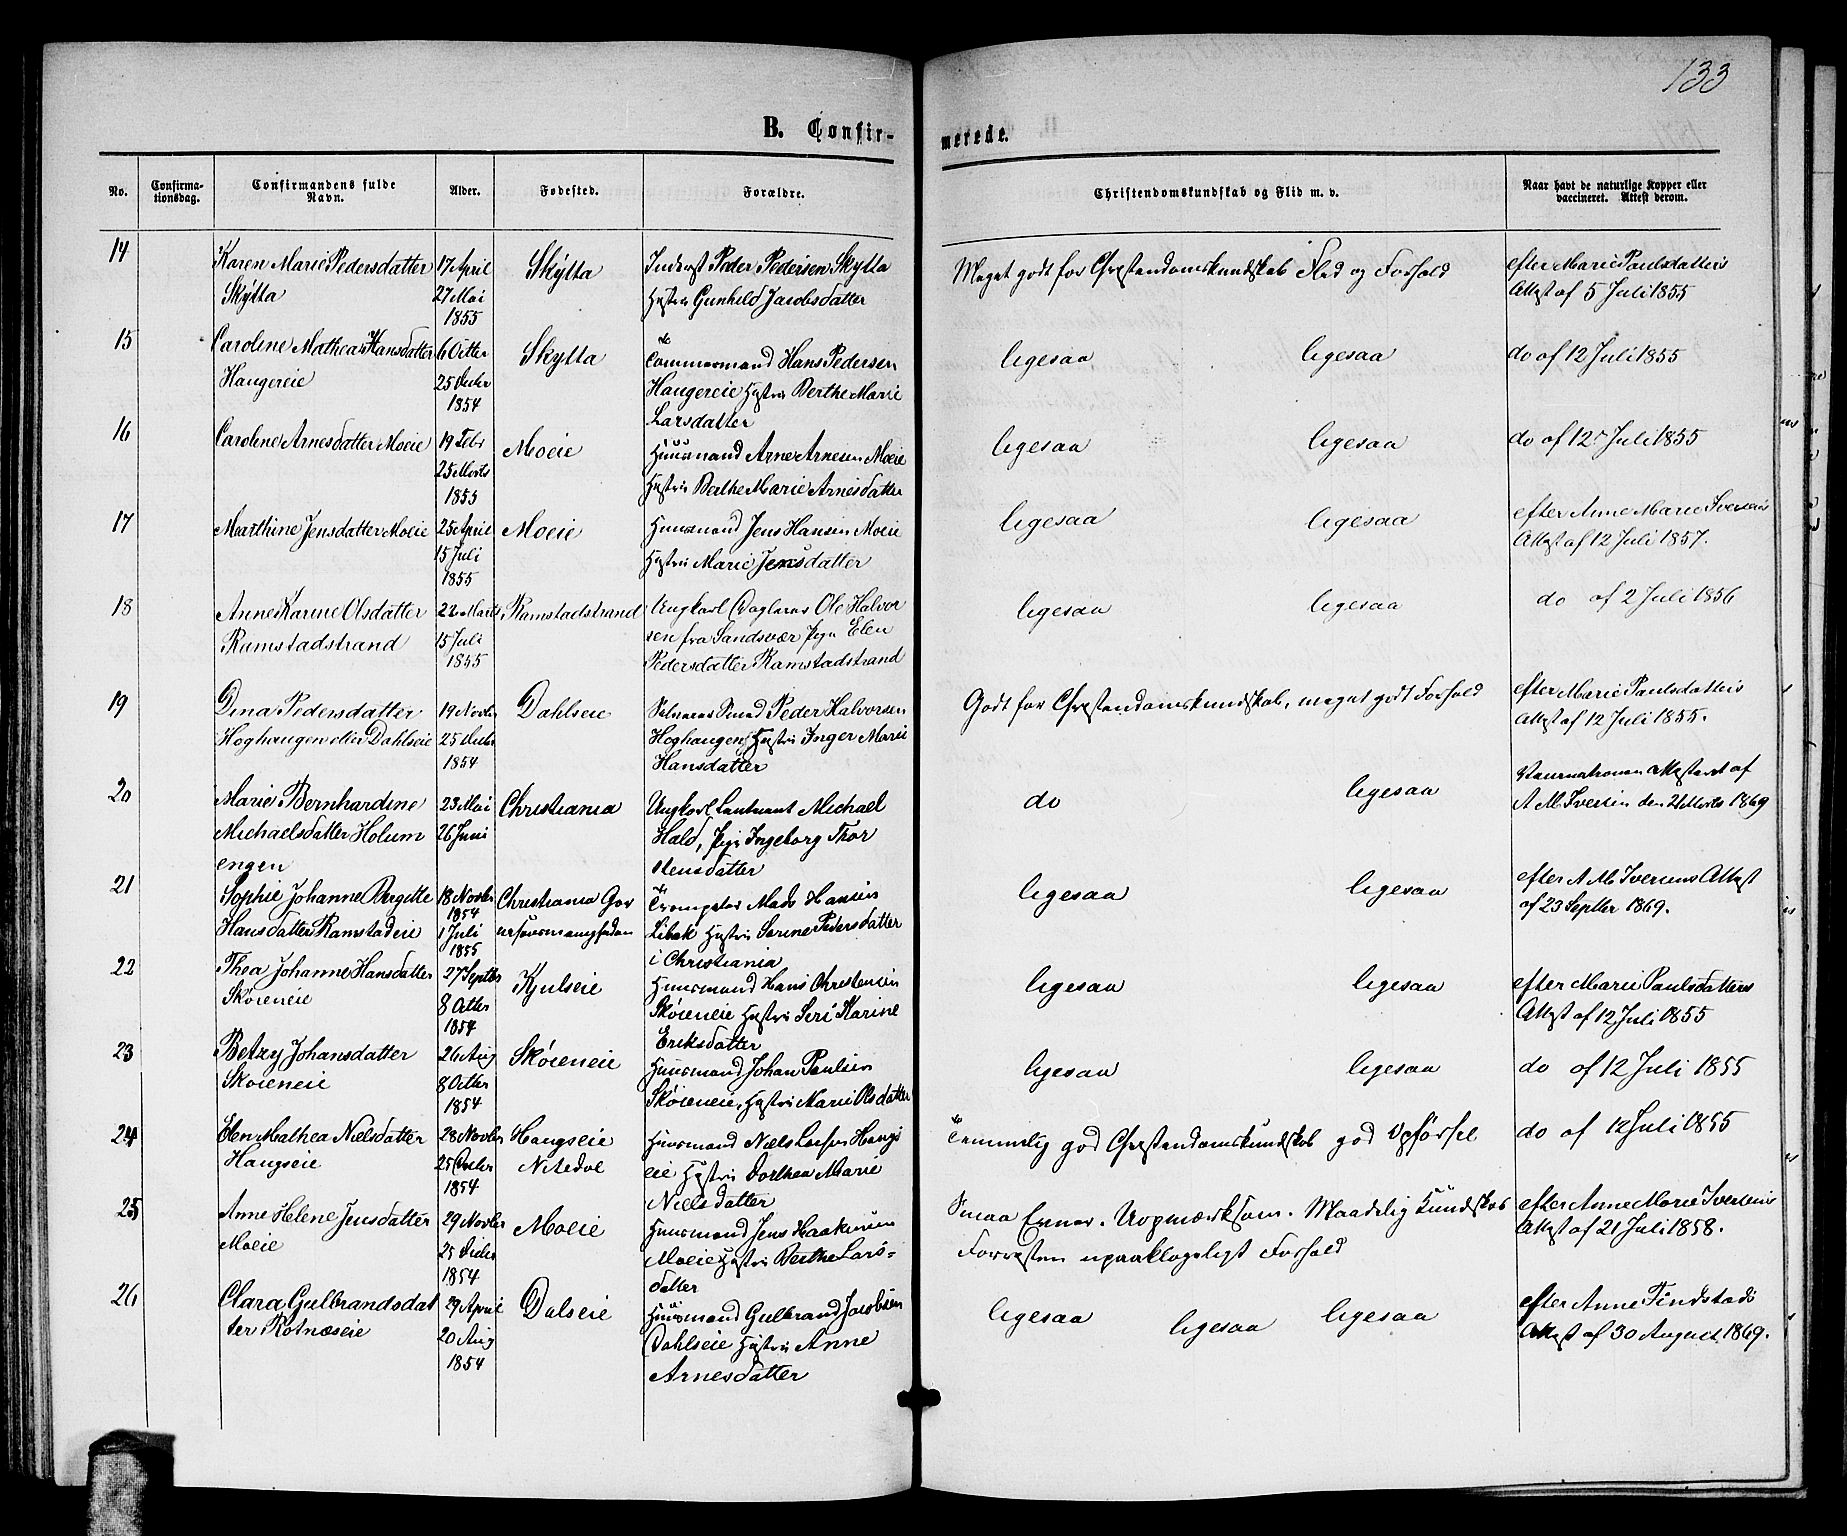 133
B. Confir-
merede.
No.
Confirma-
tionsdag.
Confirmandens fulde
Navn.
Alder.
Fødested.
Forældre.
Christendomskundskab og Flid m. v.
Naar havt de naturlige Kopper eller
vaccineret. Attest derom.
14
Karen Marie Pedersdatter
Skÿtta
17 April
27 Mai
1855
Skÿtta
Inderst Peder Pedersen Skytta
Hustru Gunhild Jacobsdatter
Meget godt for Christendomskundskab Flid og Forhold
efter Marie Paulsdatters
Attest af 5 Juli 1855
15
Caroline Mathea Hansdatter
Haugereie
6 Octbr
25 Decbr
1854
Skytta
Tømmermand Hans Pedersen
Haugereie Hustru Berthe Marie
Larsdatter
ligesaa
ligesaa
do af 12 Juli 1855
16
Caroline Arnesdatter Moeie
19 Febr
25 Marts
1855
Moeie
Huusmand Arne Arnesen Moeie
Hustru Berthe Marie Arnesdatter
ligesaa
ligesaa
do af 12 Juli 1855
17
Marthine Jensdatter Moeie
25 April
15 Juli
1855
Moeie
Huusmand Jens Hansen Moeie
Hustru Marie Jensdatter
ligesaa
ligesaa
efter Anne Marie Iversens
Attest af 12 Juli 1857.
18
Anne Karine Olsdatter
Ramstadstrand
22 Marts
15 Juli
1855
Ramstadstrand
Ungkarl Daglører Ole Halvor
sen fra Sandsvær Pige Elen
Pedersdatter Ramstadstrand
ligesaa
ligesaa
do af 2 Juli 1856
19
Dina Pedersdatter
Hoghaugen eller Dahlseie
19 Novbr
25 Decbr
1854
Dahlseie
Peder Halvorsen
Hoghaugen, Hustru Inger Marie
Hansdatter
Godt for Christendomskundskab, meget godt Forhold
efter Marie Paulsdatters
Attest af 12 Juli 1855.
20
Marie Bernhardine
Michaelsdatter Holum
engen
23 Mai
26 Juni
Christiania
Ungkarl Lieutnant Michael
Hald, Pige Ingeborg Thor
stensdatter
do
ligesaa
Vaccinationen attesteret af
A. M. Iversen den 21 Marts 1869
21
Sophie Johanne Birgitte
Hansdatter Ramstadeie
18 Novbr
1854
1 Juli
1855
Christiania Gar
Trompeter Mads Hansen
Libak Hustru Serine Pedersdatter
i Christiania
ligesaa
ligesaa
efter A. M. Iversens Attest
af 23 Septbr 1869.
22
Thea Johanne Hansdatter
Skøieneie
27 Septbr
8 Octbr
1854
Kjulseie
Huusmand Hans Christensen
Skøieneie Hustru Seri Karine
Eriksdatter
ligesaa
ligesaa
efter Marie Paulsdatters
Attest af 12 Juli 1855
23
Betzy Johansdatter
Skøieneie
26 Aug
8 Octbr
1854
Skøieneie
Huusmand Johan Paulsen
Skøieneie, Hustru Marie Olsdatter
ligesaa
ligesaa
do af 12 Juli 1855
24
Elen Mathea Nielsdatter
Haugseie
28 Novbr
25 Decbr
1854
Haugseie
Nitedal
Huusmand Niels Larsen Haugs
eie Hustru Dorthea Marie
Nielsdatter
Temmelig god Christendomskundskab god Opførsel
do af 12 Juli 1855
25
Anne Helene Jensdatter
Moeie
29 Novbr
25 Decbr
1854
Moeie
Huusmand Jens Haakensen
Moeie Hustru Berthe Lars-
datter
Smaa Evner. Uopmærksom. Maadelig Kundskab
Forresten upaaklageligt Forhold
efter Anne Marie Iversens
Attest af 21 Juli 1858.
26
Clara Gulbrandsdat
ter Rotnæseie
29 April
20 Aug
1854
Dalseie
Huusmand Gulbrand Jacobsen
Dahlseie Hustru Anne
Arnesdatter
ligesaa
ligesaa
ligesaa
efter Anne Findstads
Attest af 30 August 1869.